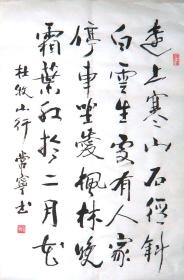 遠上寒山石徑斜
白雲生處有人家
停車坐愛楓林晚
霜葉紅於二月花
杜牧山行 常寧书